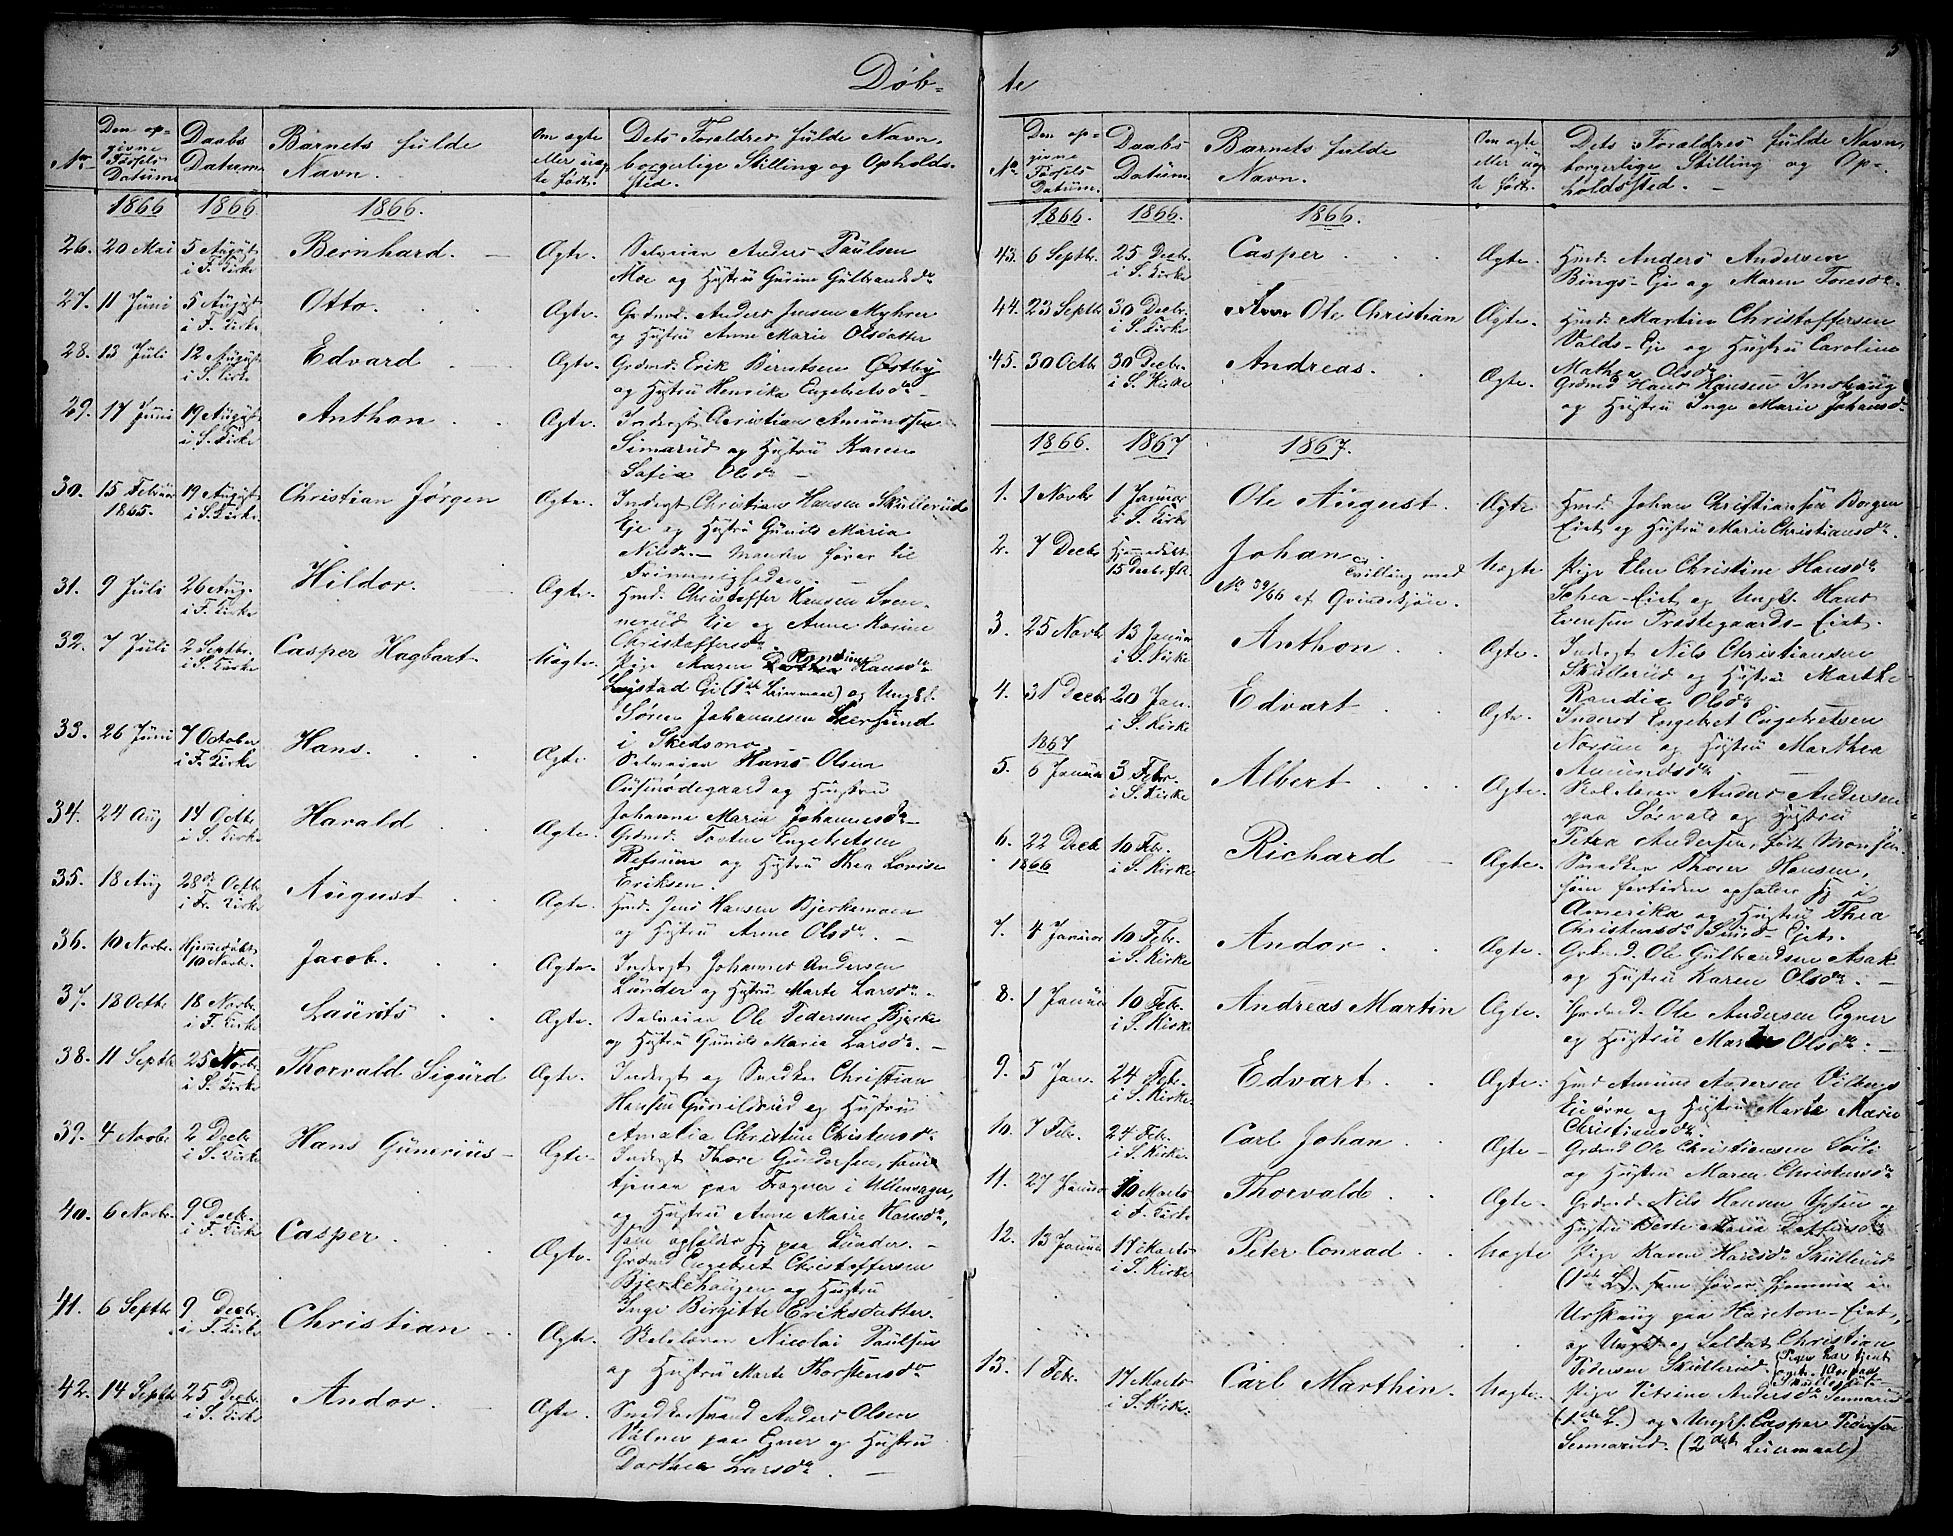 Døb-
Nr
Den op-
givne
Fødsels
Datum
Daabs
Datum
Barnets fulde
Navn.
Om ægte
eller uæg
te født.
Dets Foraldres fulde Navn,
borgerlige Stilling og Opholds-
sted.
1866 1866 1866.
26. 20 Mai 5 August i F. Kirke Bernhard. Ægte. Selveier Anders Paulsen
Moe og Hustru Gurine Gulbrandsdr
27. 11 Juni 5 August i F. Kirke Otto. Ægte. Grdmd. Anders Jensen Myhrer
og Hustru Anne Marie Olsdatter
28. 13 Juli 12 August i S. Kirke Edvard Ægte. Grdmd. Erik Berntsen Østby
og Hustru Henrika Engebretsdr
29. 17 Juni 19 August i S. Kirke Anthon Ægte. Inderst Christian Amundsen
Simarud og Hustru Karen
Sofia Olsdr
30. 15 Februar 1865. 19 August i S. Kirke Christian Jørgen Ægte. Inderst Christian Hansen Skullerud
Eje og Hustru Gunild Maria
Nilsdr. - Manden hører til
Frimenigheden.
31. 9 Juli 26 Aug. i F. Kirke Hildor. Ægte. Hmd. Christoffer Hansen Sven-
nerud Eie og Anne Karine
Christoffersdr
32. 7 Juli 2 Septbr. i S. Kirke Casper Hagbart Uægte. Pige Maren Randine Hansdr
Eie (1ste Leiermaal) og Ungk.
Søren Johannesen Leersund
i Skedsmo.
33. 26 Juni 7 October i F. Kirke Hans. Ægte. Selveier Hans Olsen
og Hustru
Johanne Maria Johannesdr
34. 24 Aug 14 Octbr i S. Kirke Harald Ægte. Grdmd. Torsten Engebretsen
Refsum og Hustru Thea Lovise
Eriksen.
35. 18 Aug 28de Octbr i Fr. Kirke August Ægte. Hmd. Jens Hansen Bjerkemoen
og Hustru Anne Olsdr.
36. 10 Novbr. Hjemmedøbt 10 Novbr. Jacob. Ægte. Inderst Johannes Andersen
Lunder og Hustru Marte Larsdr.
37. 18 Octbr 18 Novbr. i F. Kirke Laurits Ægte. Selveier Ole Pedersen Bjerke
og Hustru Gunild Maria Larsdr.
38. 11 Septbr 25 Novbr. i S. Kirke Thorvald Sigurd Ægte. Inderst og Snedker Christian
Hansen Gunildrud og Hustru
Amalia Christine Christensdr
39. 4 Novbr 2 Decbr i S. Kirke Hans Gunerius Ægte. Inderst Thore Gundersen, som
tjener paa Frogner i Ullensager,
og Hustru Anne Marie Hansdr,
som opholder sig paa Lunder.
40. 6 Novbr. 9 Decbr. i F. Kirke Casper. Ægte. Grdmd Engebret Christoffersen
Bjerkehaugen og Hustru
Inge Birgitte Eriksdatter.
41. 6 Septbr 9 Decbr. i F. Kirke Christian Ægte. Skolelærer Nicolai Paulsen
og Hustru Marte Thorstensdr
42. 14 Septbr 25 Decbr. i S. Kirke Andor. Ægte. Snedkersvend Anders Olsen
Valner paa Egner og Hustru
Dorthea Larsdr.
te
5
No
Den op-
givne
Fødsels
Datum.
Daabs
Datum
Barnets fulde
Navn.
Om ægte
eller uæg
te født.
Dets Foraldres fulde Navn,
borgerlige Stilling og Op-
holdssted.
1866. 1866. 1866.
43. 6 Septbr. 25 Decbr. i S. Kirke Casper Ægte. Hmd. Anders Andersen
Bings-Eje og Maren Toresdr.
44. 23 Septbr 30 Decbr. i S. Kirke Ole Christian Ægte. Hmd. Martin Christoffersen
Valds-Eje og Hustru Caroline
Mathea Olsdr
45. 30 Octbr 30 Decbr. i S. Kirke Andreas. Ægte. Grdmd Hans Hansen Imshaug
og Hustru Inge Marie Johansdr
1866. 1867 1867.
1. 1 Novbr 1 Januar i S. Kirke Ole August. Ægte Hmd. Johan Christiansen Borgen
Eiet og Hustru Marie Christiansdr.
2. 7 Decbr Hjemmedøbt 15 Decbr f. A. Johan Tvilling med
No 39/66 af Qvindekjøn. Uægte Pige Elen Christine Hansdr
Eiet og Ungk. Hans
Evensen Prestegaards-Eiet.
3. 25 Novbr 13 Januar i S. Kirke Anthon Ægte. Inderst Nils Christiansen
Skullerud og Hustru Marthe
Randia Olsdr
4. 31 Decbr 20 Jan. i S. Kirke Edvart Ægte. Inderst Engebret Engebretsen
Norum og Hustru Marthea
Amundsdr
1867
5. 6 Januar 3 Febr. i S. Kirke Albert Ægte. Skolelærer Anders Andersen
paa Sørvald og Hustru
Petra Andersen, født Monsen
6. 22 Decbr 1866 10 Febr. i S. Kirke Richard Ægte. Snedker Thorer Hansen,
som fortiden opholder sig i
Amerika og Hustru Thea
Christensdr Eiet.
7. 4 Januar 10 Febr. i S. Kirke Andor Ægte. Grdmd. Ole Gulbrandsen Asak
og Hustru Karen Olsdr.
8. 1 Januar 10 Febr. i S. Kirke Andreas Martin Ægte. Grdmd. Ole Andersen Egner
og Hustru Olsdr.
9. 5 Jan. 24 Febr. i S. Kirke. Edvart. Ægte. Hmd Amund Andersen Vilbergs
Eie øvre og Hustru Marte Marie
Christiansdr.
10. 7 Febr. 24 Febr. i S. Kirke. Carl Johan Ægte Grdmd Ole Christiansen Sørli
og Hustru Maren Christensdr
11. 27 Januar 10 Marts i F. Kirke Thorvald Ægte. Grdmd. Nils Hansen og
Hustru Berte Maria
12. 13 Januar 17 Marts i S. Kirke Peter Conrad Uægte Pige Karen Hansdr Skullerud
(1ste L.) som hører hjemme i
Urskaug paa Eiet,
og Ungk. og Soldat Christian
Pedersen Skullerud. (Pigen har tjent
Skullerud.)
13. 1 Febr. 17 Marts i S. Kirke. Carl Marthin. Uægte. Pige Petrine Andersdr Sennerud
(1ste L.) og Ungk. Casper Pedersen
Sennerud. (2det Leiermaal)